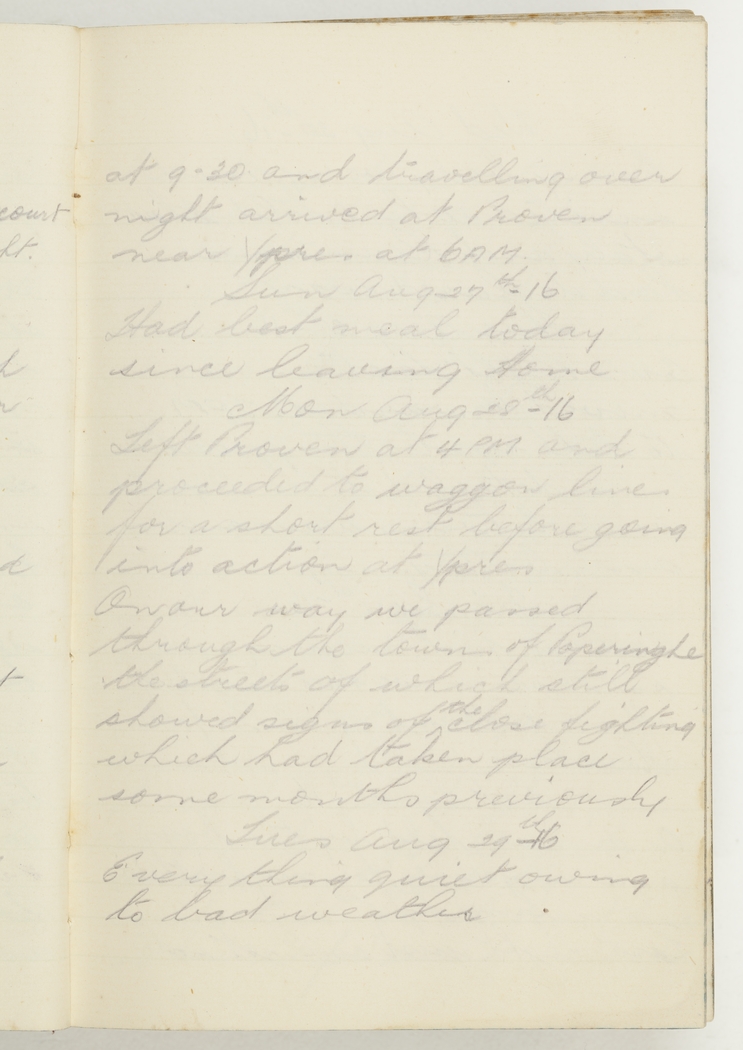 at 9-30 and travelling over
night arrived at Proven
near Ypres at 6 AM.
Sun Aug 27th-16
Had best meal today
since leaving Home
Mon Aug 28th-16
Left Proven at 4 PM and
proceeded to waggon lines
for a short rest before going
into action at Ypres
On our way we passed
through the town of Poperinghe
the streets of which still
showed signs of the close fighting
which had taken place
some months previously
Tues Aug 29th-16
Everything quiet owing
to bad weather
court
ht.